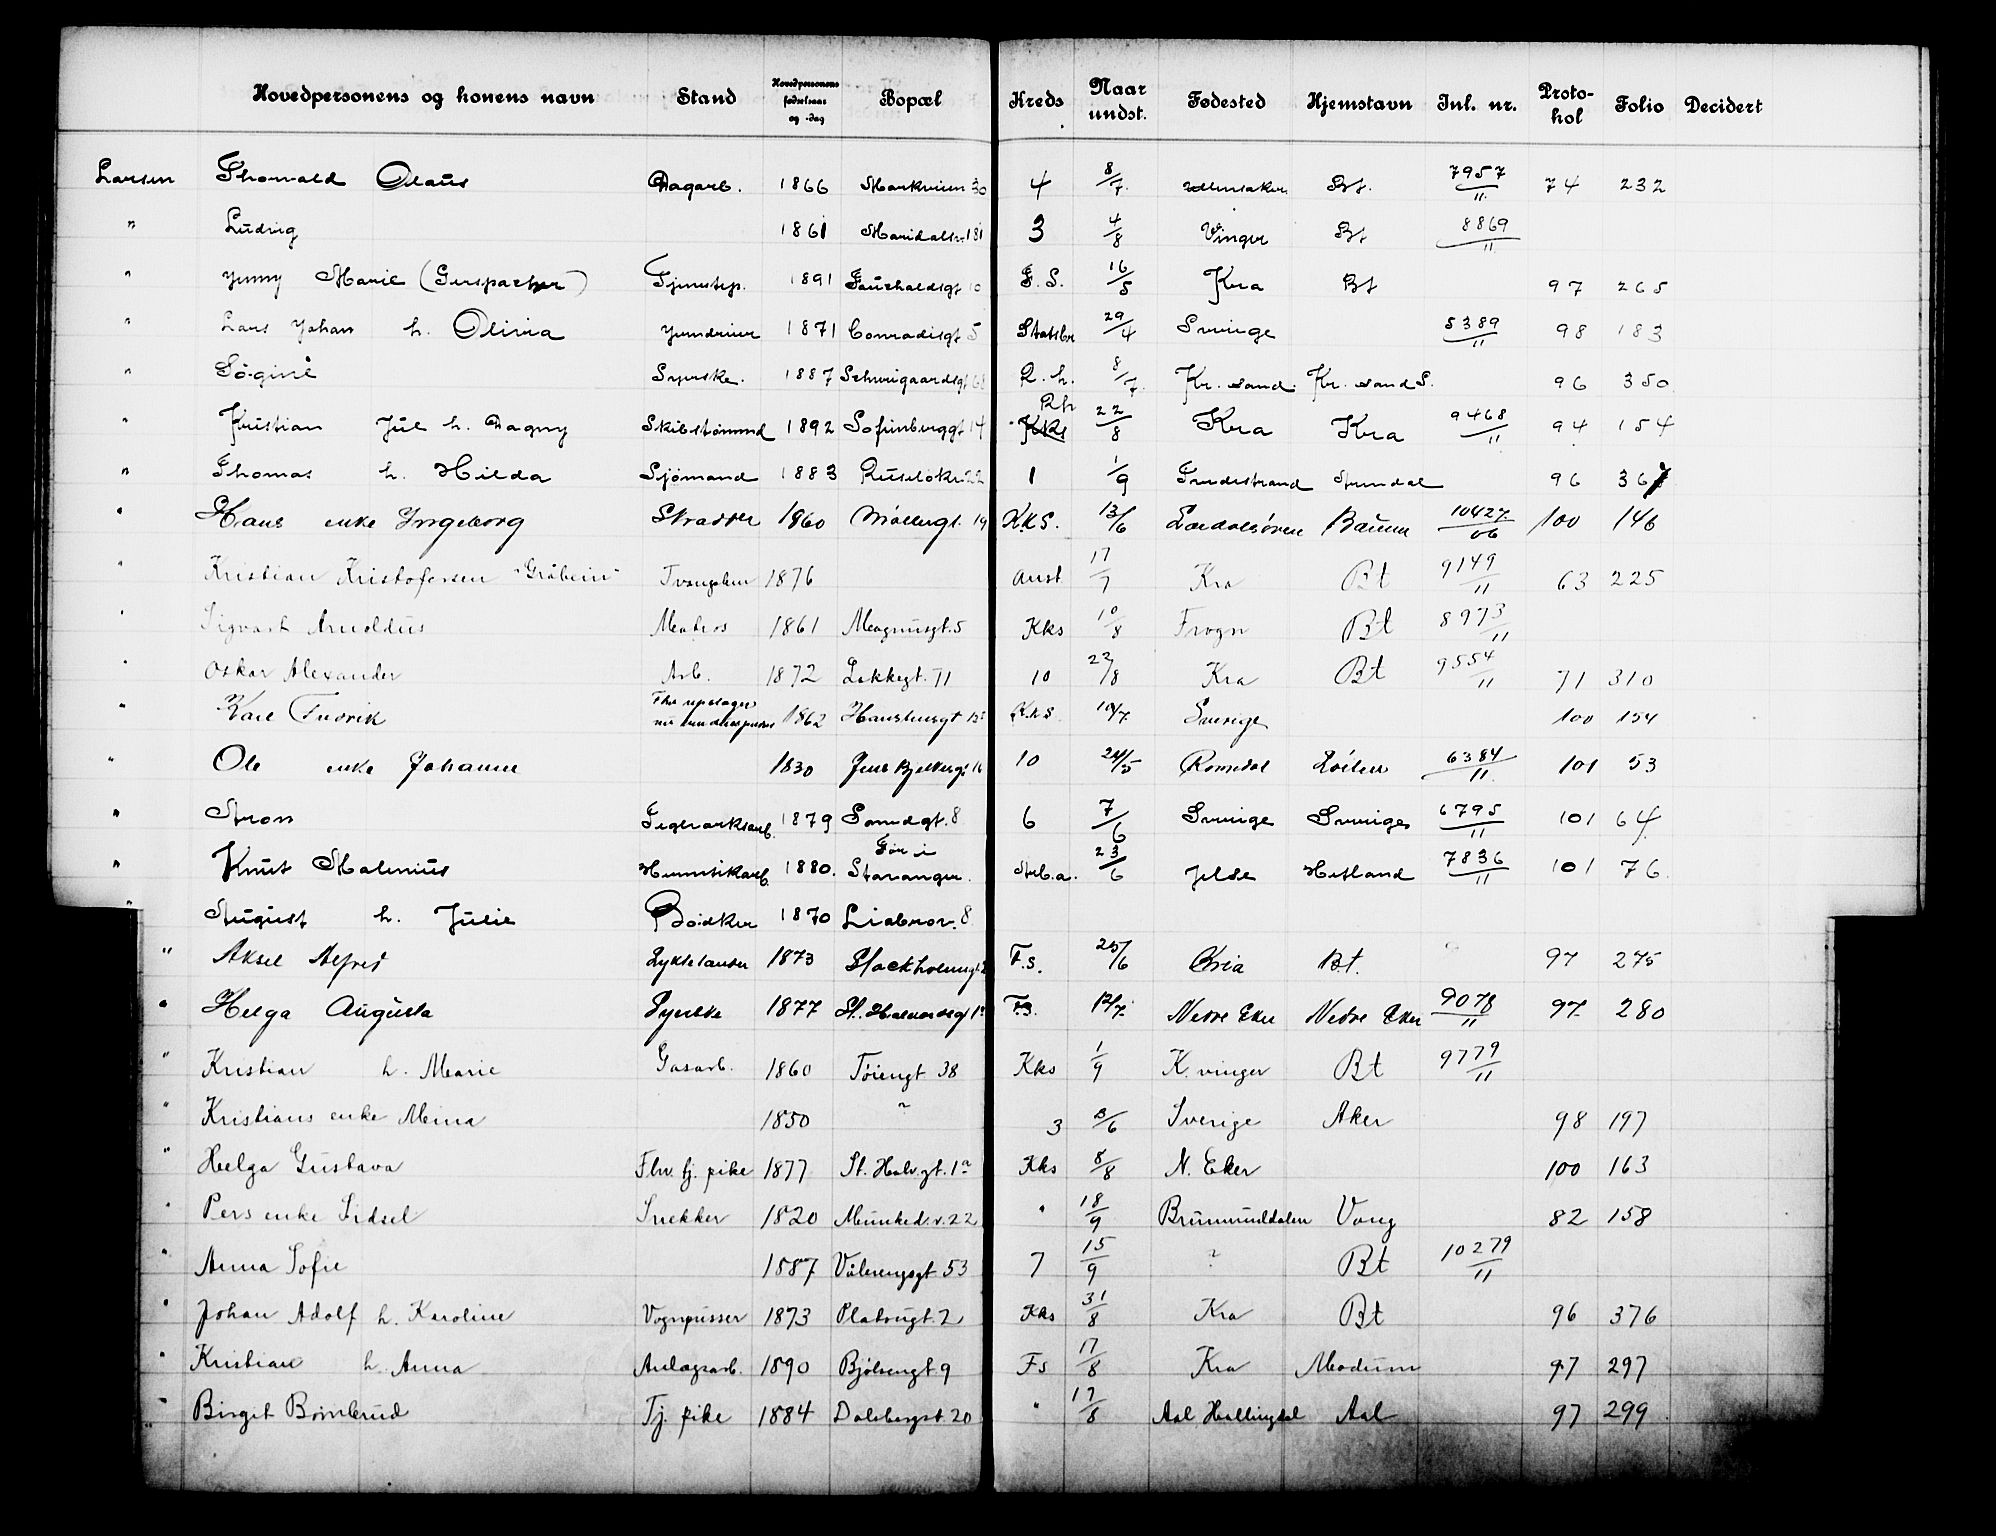 Hovedpersonens og konens navn Stand Hovedpersonens fødselsaar og -dag Bopæl Kreds Naar undst. Fødested Hjemstavn Inl. nr. Protokol Folio Decidert
Larsen Thorvald Olaus Dagarb. 1866 Markveien 30 4 8/7 Ullensaker Bt. 7957/11 74 232
" Ludvig 1861 Maridalsv. 181 3 4/8 Vinger Bt 8869/11
" Jenny Marie ( ) Tjenestep. 1891 10 F.S. 16/5 Kra Bt 97 265
" Lars Johan h. Olivia 1871 Conradisgt 5 Statsbr 29/4 Sverige 5389/11 98 183
" Syerske. 1887 Schweigaardsgt 68 R.h. 8/7. Kr. sand. Kr. sand S. 96 350
" Kristian Jul h. Dagny Skibstømmd 1892 Sofienberggt 14 Rh Kks 22/8 Kra Kra 9468/11 94 154
" Thomas h. Hilda Sjömand 1883 Ruseløkv. 22 1 1/9 96 367
" Hans enke Ingeborg Skrædder 1860 Møllergt. 19 K.K.S. 13/6 Lærdalsøren Bærum 10427/06 100 146
" Kristian Kristofersen "Gråbein" 1876 Anst 17/7 Kra Bt 9149/11 63 225
" Sigvart Arnoldus Matros 1861 Magnusgt. 5 Kks 10/8 Frogn Bt 8973/11
" Oskar Alexander Arb. 1872 Lakkegt. 71 10 22/8 Kra Bt 9554/11 71 310
" Karl Fredrik 1862 K.k.S. 10/7 Sverige 100 154
" Ole enke Johanne 1830 Jens Bjelkesgt 16 10 24/5 Romedal Løiten 6384/11 101 53
" Aron Teglverksarb. 1879 8 6 7/6 Sverige Sverige 6795/11 101 64
" Knut Malenius Hermetikarb. 1880. Før i Stavanger. Strb.a. 23/6 Jelse Hetland 7836/11 101 76.
" August h. Julie Bødker 1870 Liabrov. 8
" Aksel Alfred Lyktetænder 1873 Stockholmsgt F.s. 25/6 Kria Bt. 97 275
" Helga Augusta Syerske 1877 St. Halvardsgt 1a F.s. 12/7 Nedre Eker Nedre Eker 9078/11 97 280
" Kristian h. Marie Gasarb. 1860 Tøiengt 38 Kks 1/9 K.vinger Bt 9779/11
" Kristians enke Mina 1850 ? 3 8/6 Sverige Aker 98 197
" Helga Gustava Fhv. tj. pike 1877 St. Halv.gt. 1a Kks 8/8 N. Eker 100 163
" Pers enke Sidsel Snekker 1820 Munked.v. 22 " 18/9 Brumunddalen Vang 82 158
" Anna Sofie 1887 Vålerenggt 53 7 15/9 ? Bt 10279/11
" Johan Adolf h. Karoline Vognpusser 1873 Platousgt. 2 Kks 31/8 Kra Bt 96 376
" Kristian h. Anna Anlægsarb. 1890 Bjølsengt 9 Fs 17/8 Kra Modum 97 297
" Birgit Tj. pike 1884 Dalsbergst. 20 " 17/8 Aal Hallingdal Aal 97 299